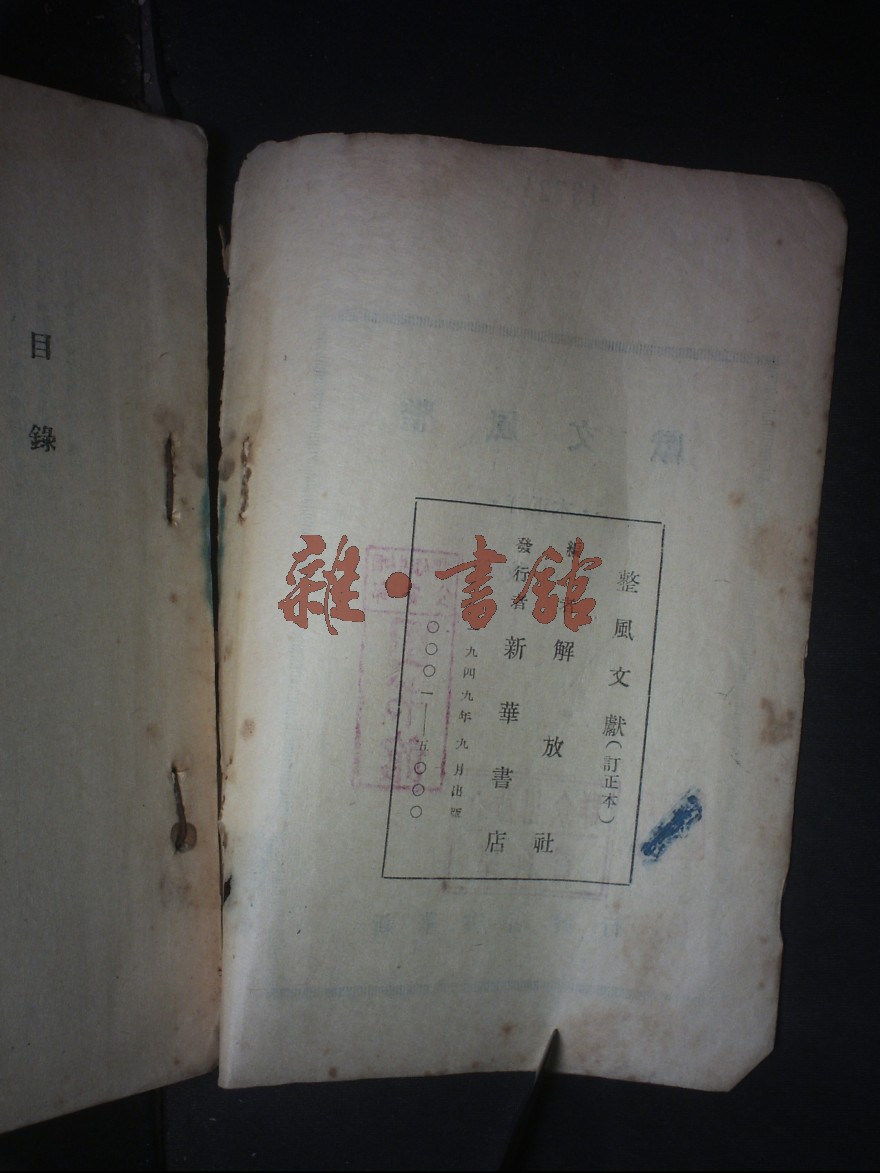 整風文獻（訂正本）
編者 解放社
發行者 新華書店
一九四九年九月出版
〇〇〇一——五〇〇〇
目錄
雜·書館